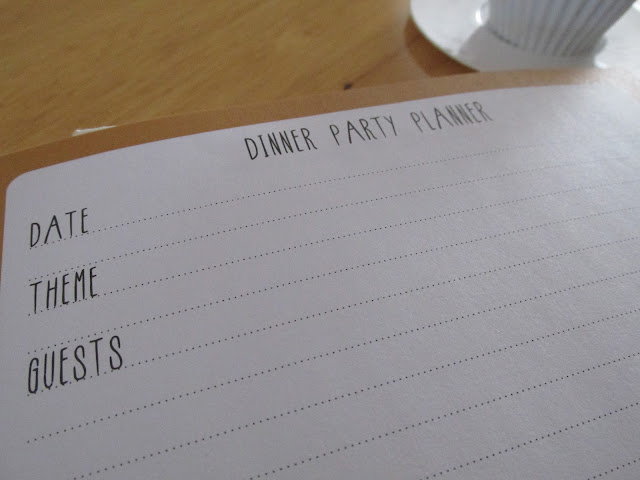 DINNER PARTY PLANNER
DATE
THEME
GUESTS